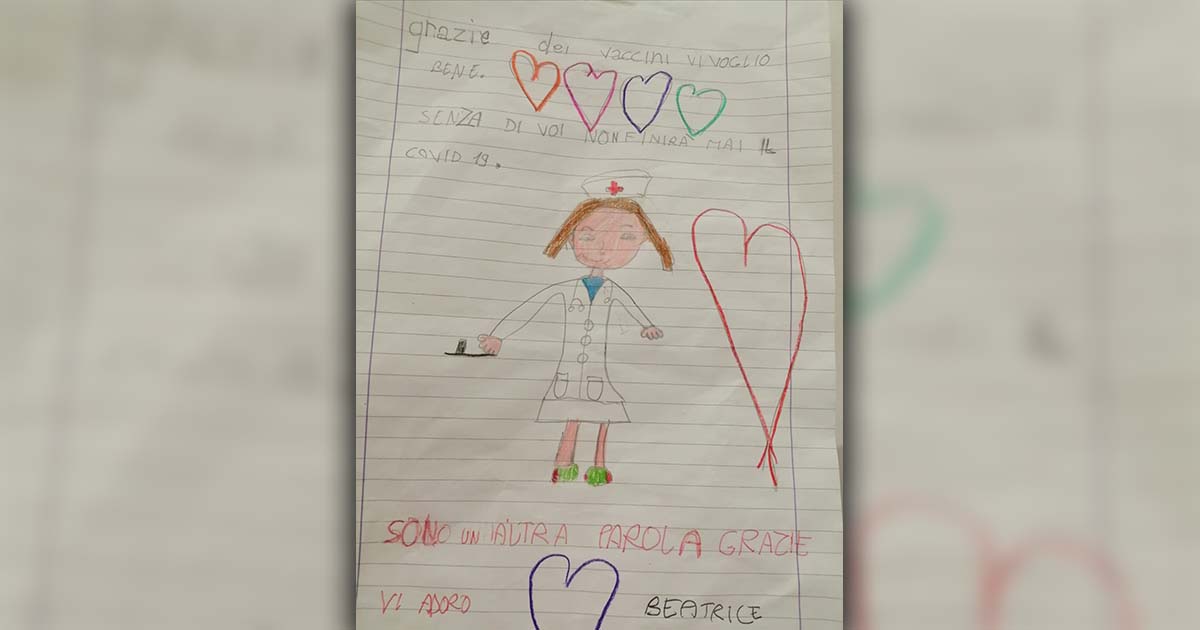 grazie dei vaccini VI VOGLIO
BENE.
SENZA DI VOI NON FINIRÀ MAI IL
COVID 19.
SONO UN'ALTRA PAROLA GRAZIE
VI ADORO BEATRICE